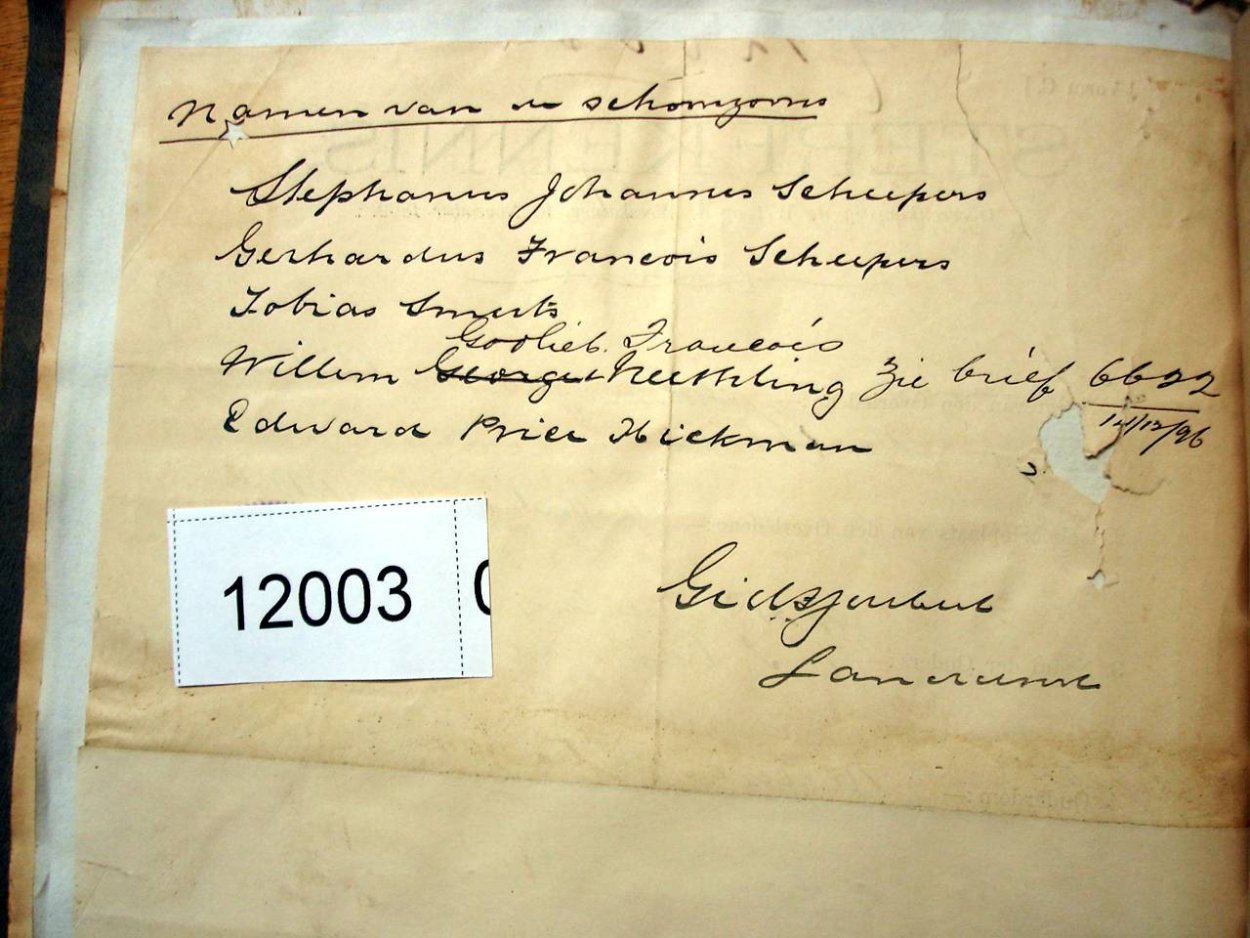 Namen van de schoonzoons
Stephanus Johannes Scheepers
Gerhardus Francois Scheepers
Tobias Smuts
Godlieb Francois
Willem George Neethling Zie brief 6622
14/12/96
Edward Price Hickman
12003
Landdrost
STERFKENNIS